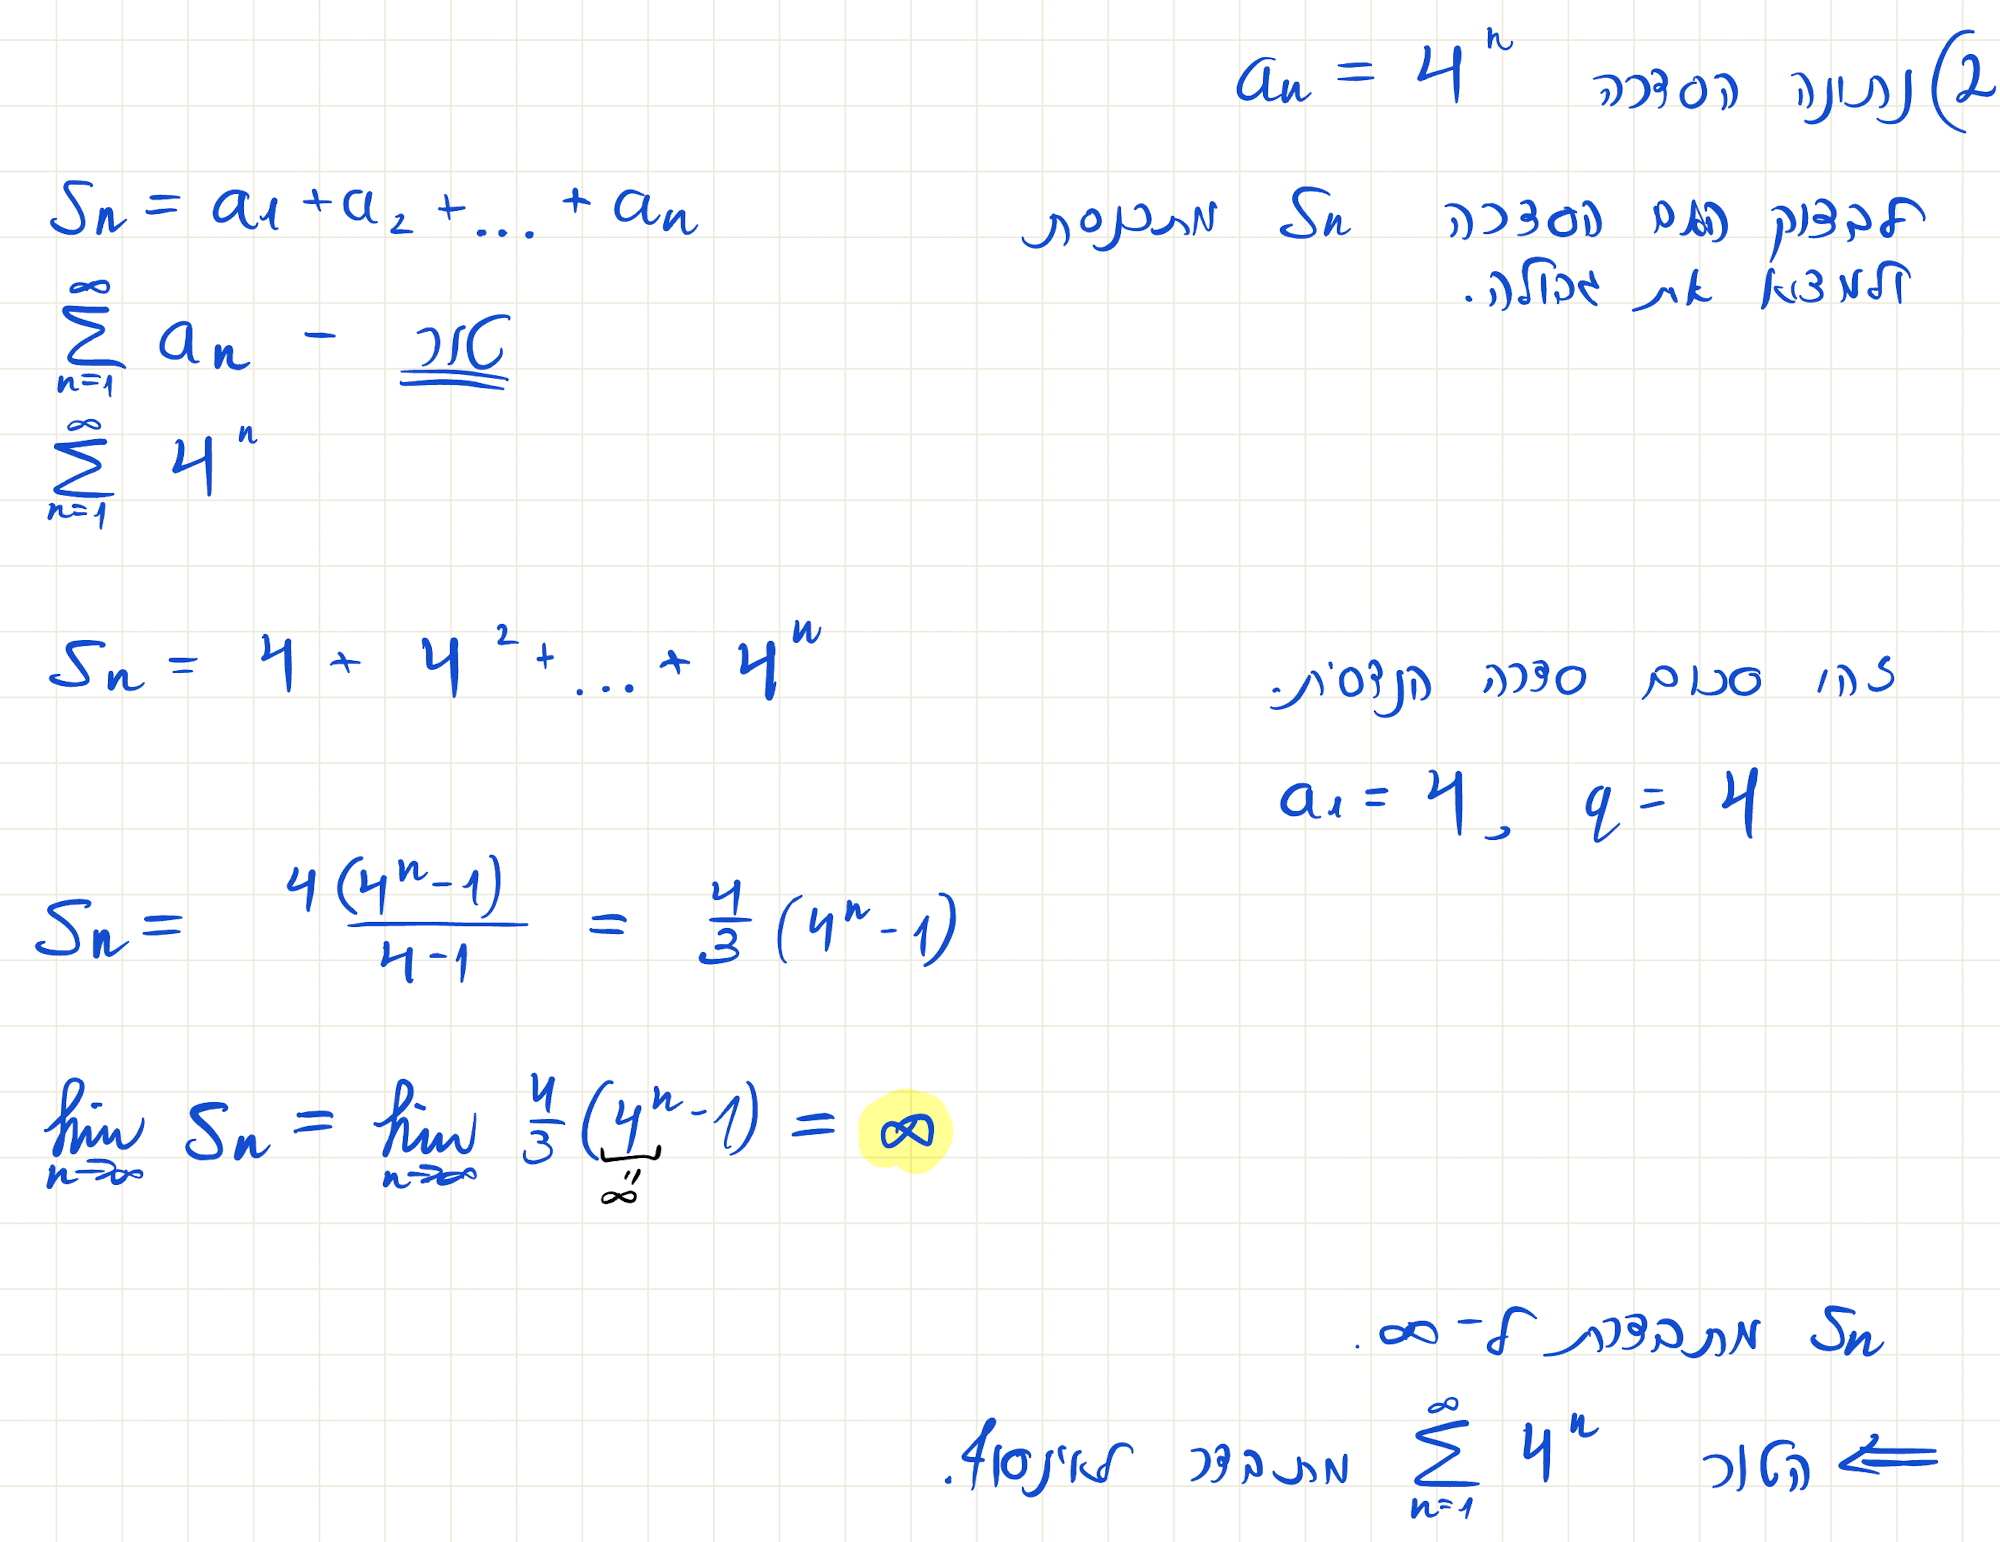 2) נתונה הסדרה aₙ = 4ⁿ
לבדוק האם הסדרה Sₙ מתכנסת
ולמצוא את גבולה.
Sₙ = a₁ + a₂ + ... + aₙ
∑_{n=1}^{∞} aₙ - טור
∑_{n=1}^{∞} 4ⁿ
Sₙ = 4 + 4² + ... + 4ⁿ
זהו סכום סדרה הנדסית.
a₁ = 4, q = 4
Sₙ = 4(4ⁿ-1)/(4-1) = 4/3 (4ⁿ-1)
lim_{n→∞} Sₙ = lim_{n→∞} 4/3 (4ⁿ-1) = ∞
" ∞
Sₙ מתבדרת ל-∞.
⇐ הטור ∑_{n=1}^{∞} 4ⁿ מתבדר לאינסוף.